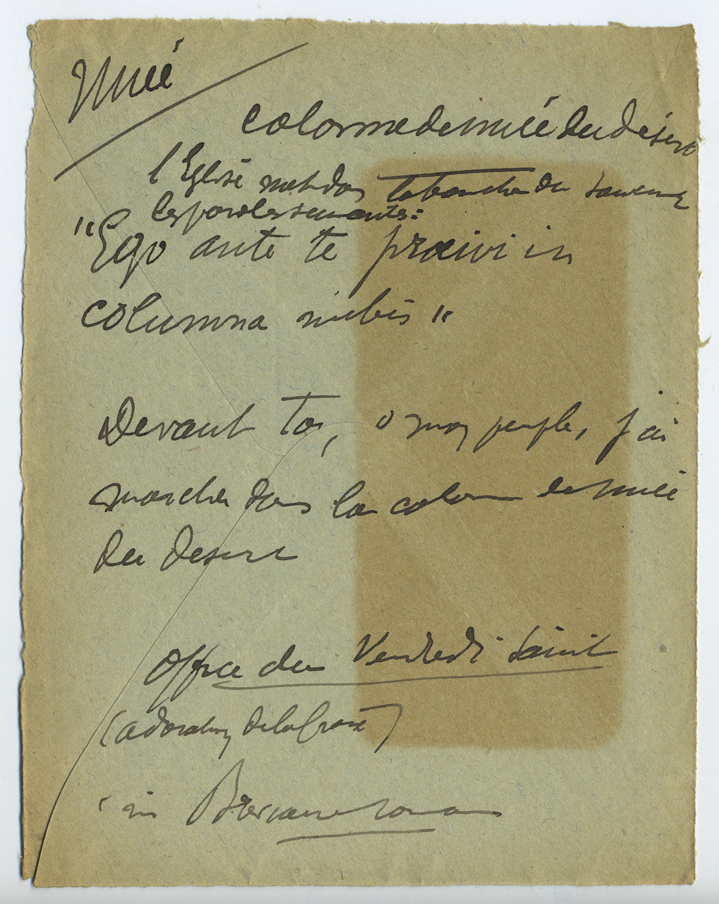 Nuée
colonne de nuée du désert
l'Eglise met dans la bouche du Sauveur
les paroles suivantes:
"Ego ante te præivi in
columna nubis"
Devant toi, o mon peuple, j'ai
marché dans la colonne de nuée
du desert
Office du Vendredi Saint
(adoration de la Croix)
in Breviaire romain